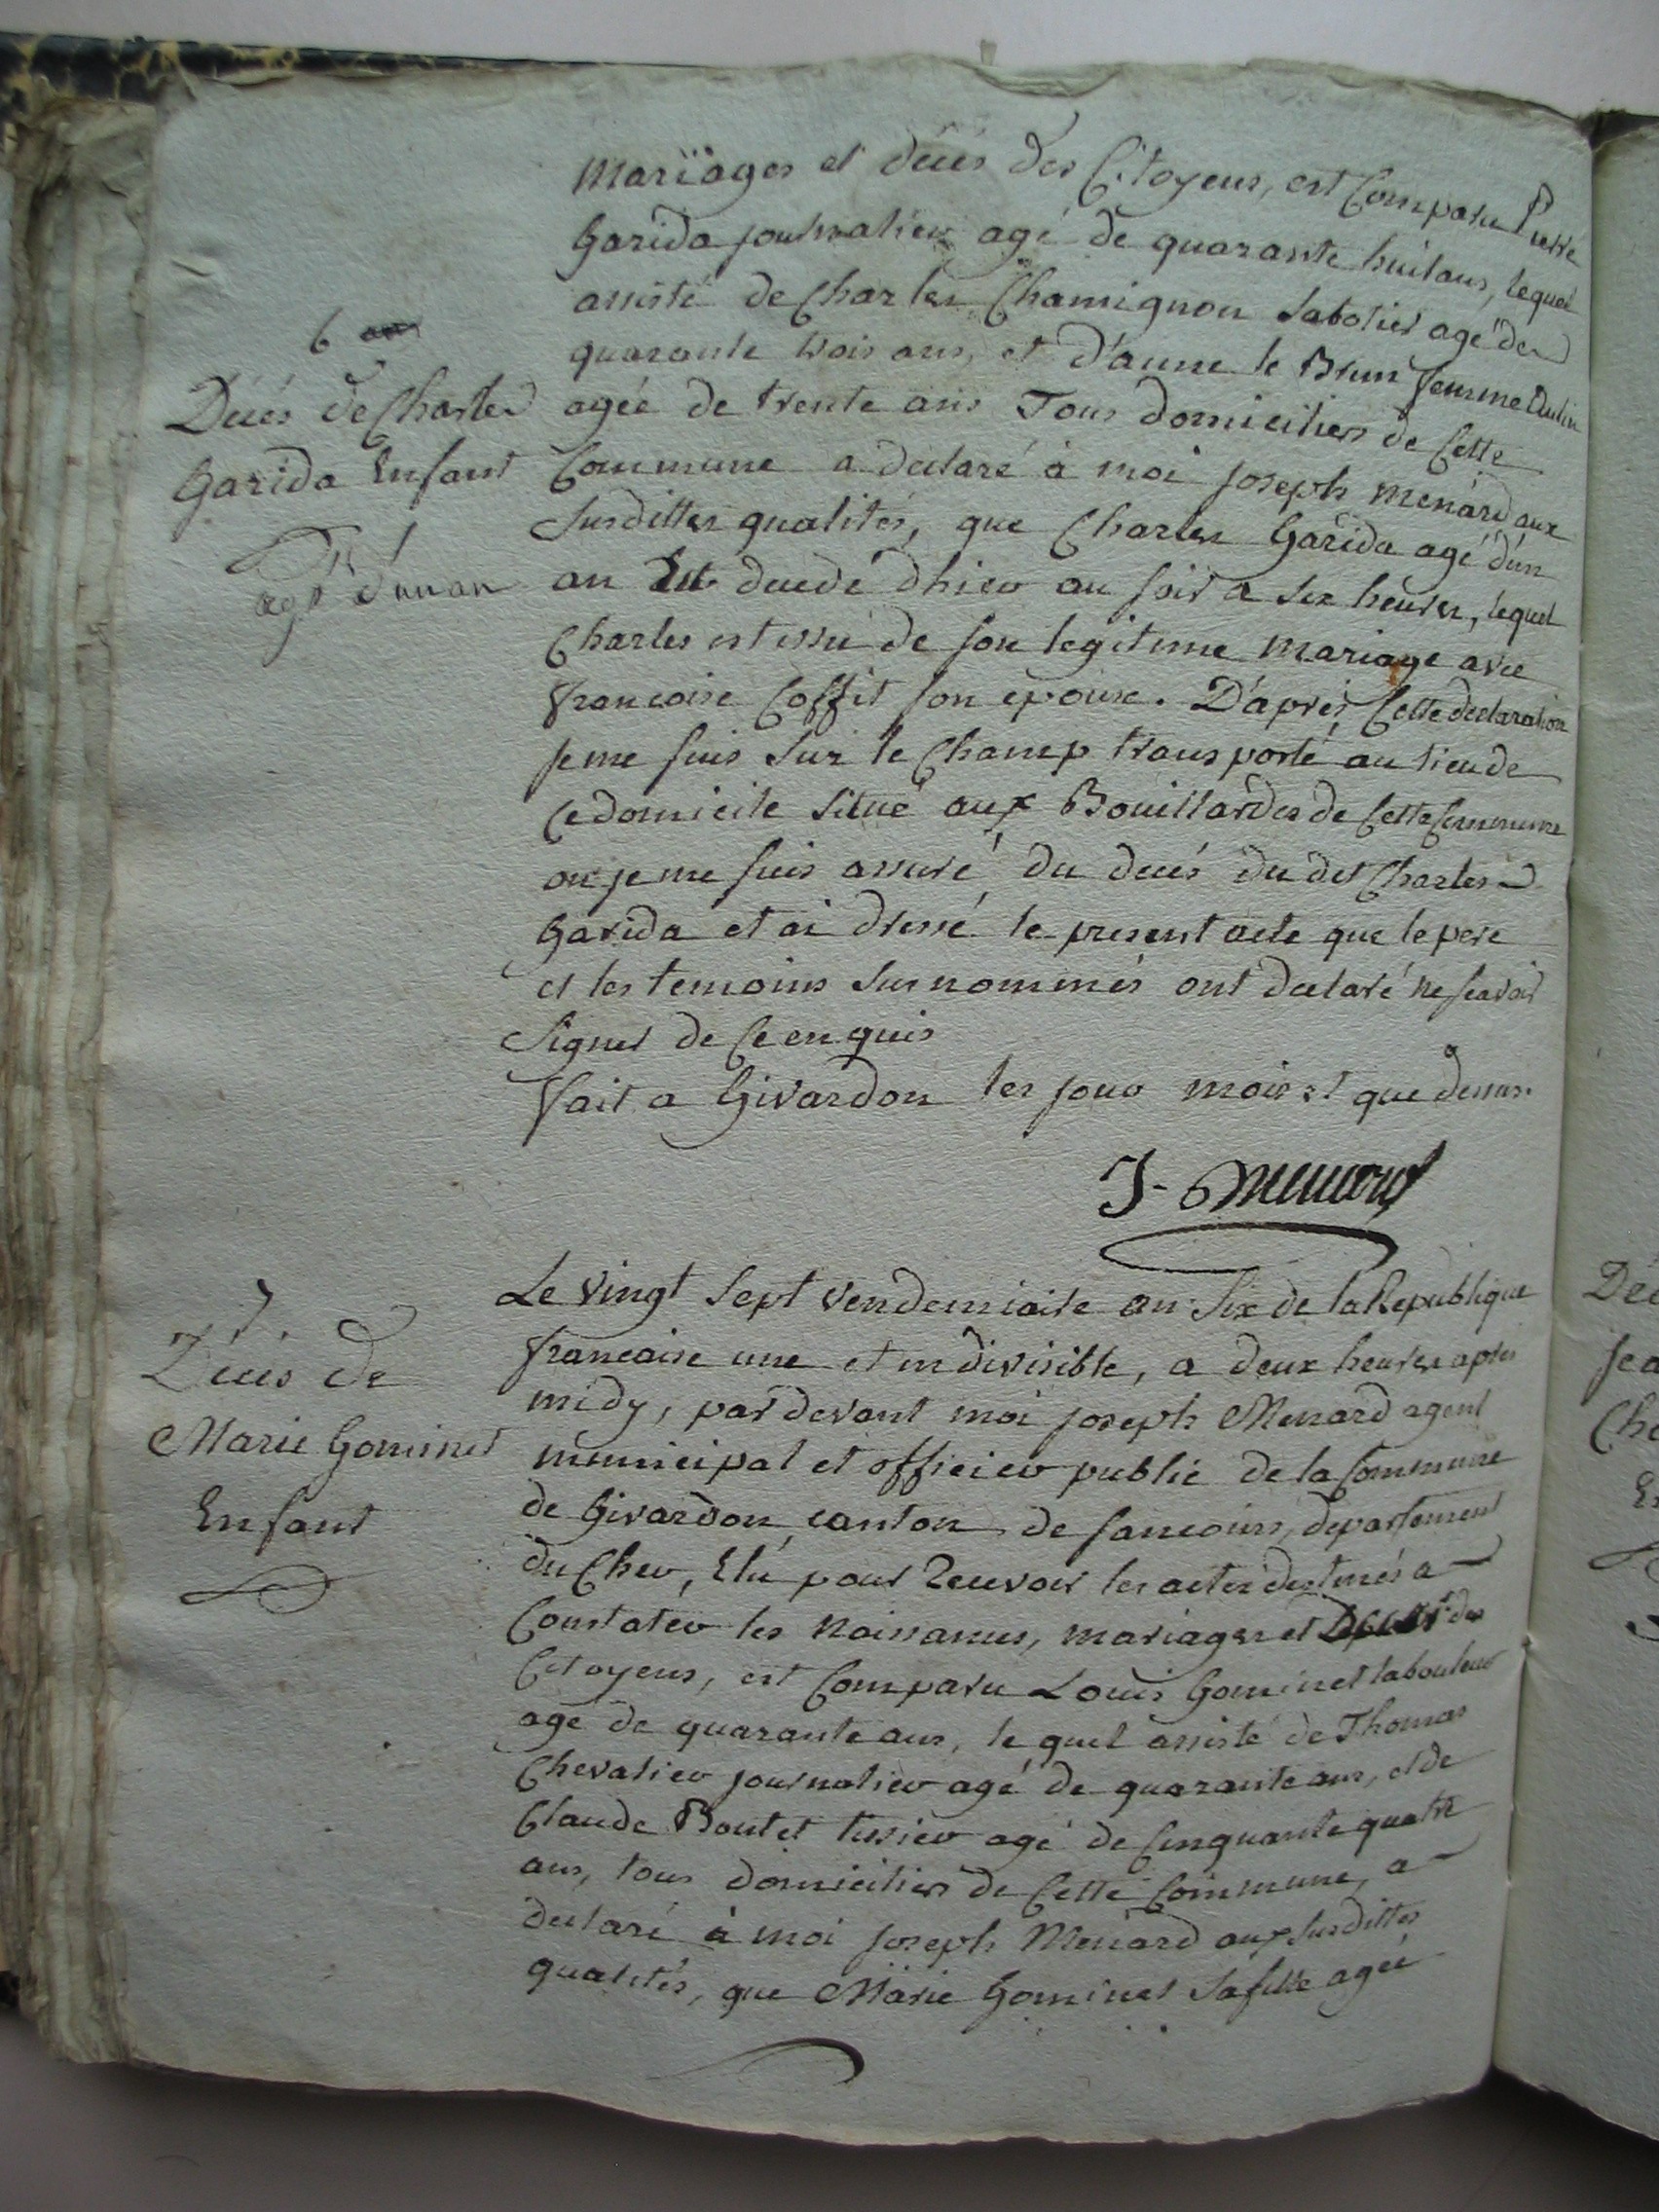 Mariages et décés des Citoyens, est Comparu Pierre
Garida journalier agé de quarante huit ans, lequel
assisté de Charles Chamignon Sabotier agé de
quarante trois ans, et d'anne le Brun femme
6
Décés de Charles
Garida Enfant
agé d'un an
agée de trente ans Tous domiciliés de Cette
Commune a declaré à moi joseph menard aux
Susdittes qualités, que Charles Garida agé d'un
an Est decedé d'hier au soir a six heures, lequel
Charles est issu de son legitime mariage avec
francoise Coffit son epouse. D'après Cette declaration
je me suis Sur le Champ transporté au lieu de
Ce domicile Situé aux Bouillardes de Cette Commune
ou je me suis assuré du decés du dit Charles
Garida et ai dressé le present acte que le pere
et les temoins Sus nommés ont declaré ne scavoir
Signer de Ce enquis
fait a Givardon les jour mois et que dessus.
J. Menard
7
Décés de
Marie Gominet
Enfant
Le Vingt Sept Vendemiaire an Six de la Republique
francaise une et indivisible, a deux heures apres
midy, par devant moi joseph Menard agent
municipal et officier public de la Commune
de Givardon canton de sancoins, departement
du Cher, Elu pour Recevoir les actes destinés a
Constater les naissances, mariages et Décés des
Citoyens, est Comparu Louis Gominet laboureur
agé de quarante ans, le quel assisté de Thomas
Chevalier journalier agé de quarante ans, et de
Claude Boutet tissier agé de Cinquante quatre
ans, tous domiciliés de Cette Commune, a
declaré à moi joseph Menard aux Susdittes
qualités, que Marie Gominet Sa fille agée
Dé
Cha